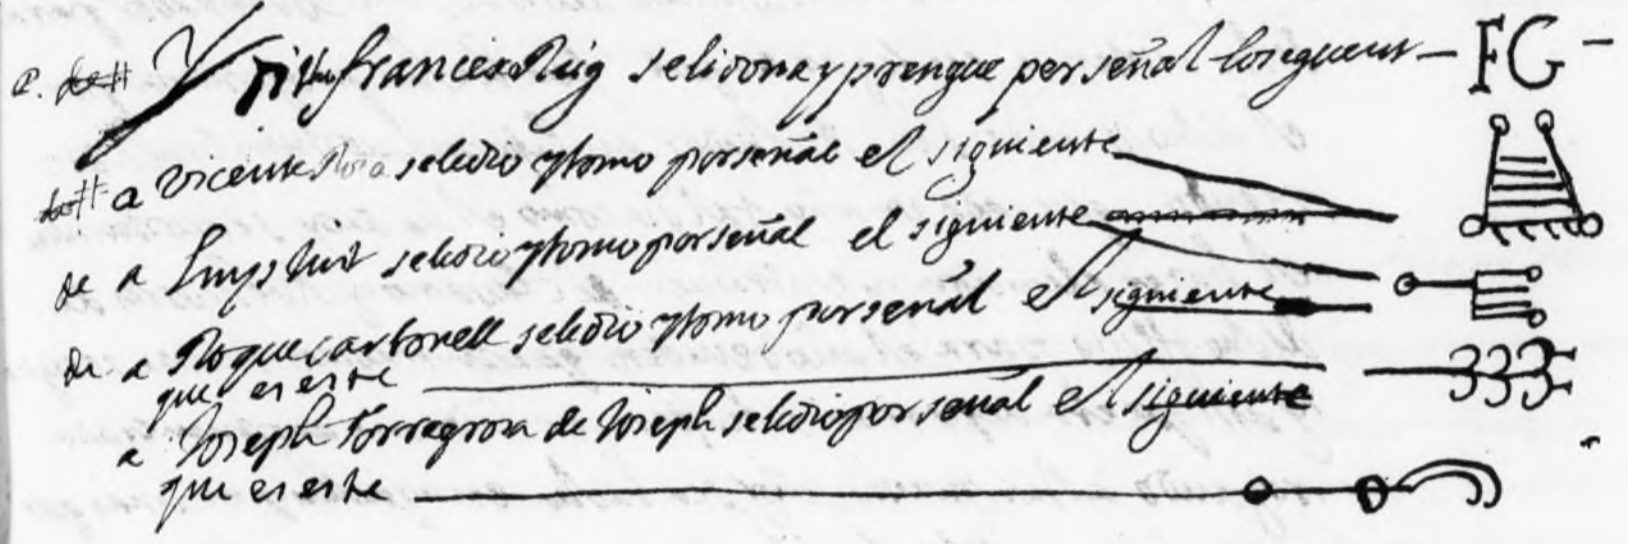 francisco Puig se li dona y prengue per señal lo seguent – FG –
a vicente se le dio y tomo por señal el siguiente
de a Luys se le dio y tomo por señal el siguiente
de a Roque carbonell se le dio y tomo por señal el siguiente
que es este
a Joseph Torregrosa de Joseph se le dio por señal el siguiente
que es este